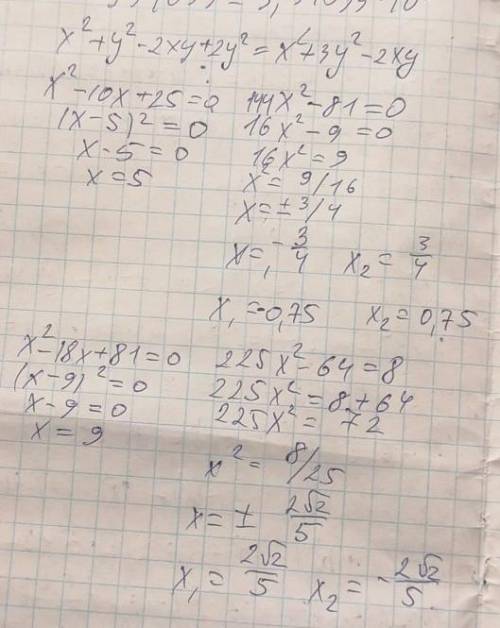 x²+y²-2xy+2y²=x²+3y²-2xy
x²-10x+25=0
(x-5)²=0
x-5=0
x=5
144x²-81=0
16x²-9=0
16x²=9
x²=9/16
x=±3/4
x₁=-3/4 x₂=3/4
x₁=-0,75 x₂=0,75
x²-18x+81=0
(x-9)²=0
x-9=0
x=9
225x²-64=8
225x²=8+64
225x²=72
x²=8/25
x=± 2√2/5
x₁=2√2/5 x₂=-2√2/5